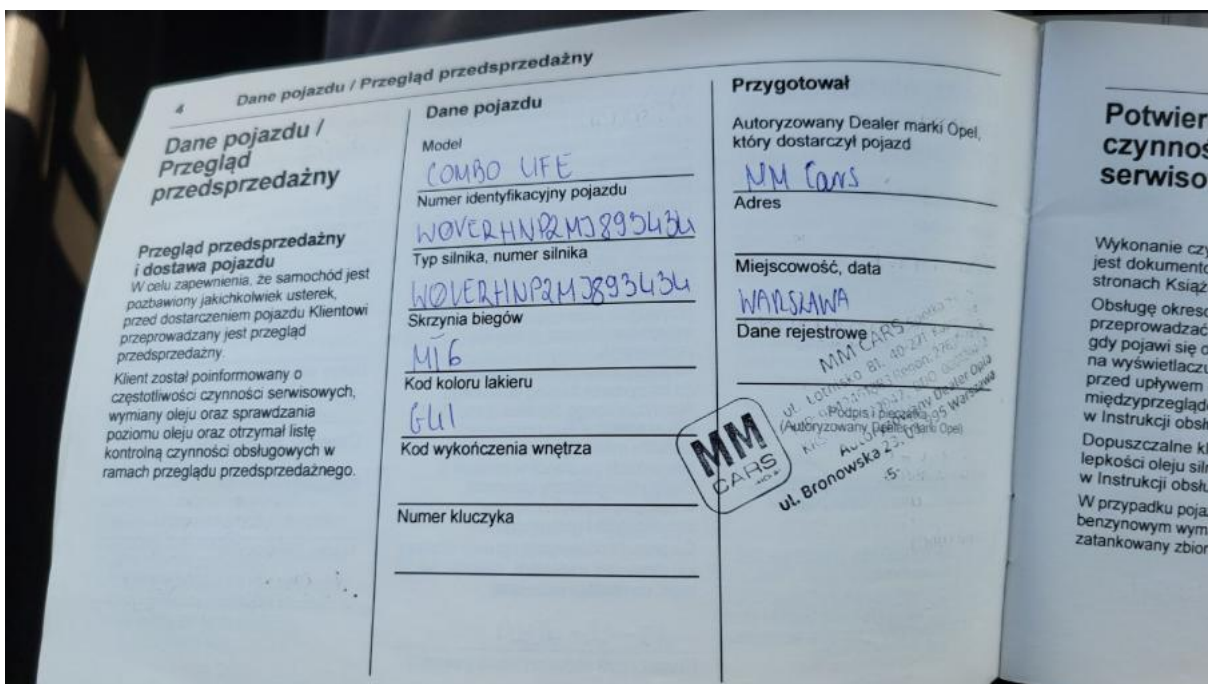 4 Dane pojazdu / Przegląd przedsprzedażny
Dane pojazdu /
Przegląd
przedsprzedażny
Przegląd przedsprzedażny
i dostawa pojazdu
W celu zapewnienia, że samochód jest
pozbawiony jakichkolwiek usterek,
przed dostarczeniem pojazdu Klientowi
przeprowadzany jest przegląd
przedsprzedażny.
Klient został poinformowany o
częstotliwości czynności serwisowych,
wymiany oleju oraz sprawdzania
poziomu oleju oraz otrzymał listę
kontrolną czynności obsługowych w
ramach przeglądu przedsprzedażnego.
Dane pojazdu
Model
COMBO LIFE
Numer identyfikacyjny pojazdu
WØVERHNP2MJ893434
Typ silnika, numer silnika
WØVERHNP2MJ893434
Skrzynia biegów
MT6
Kod koloru lakieru
G41
Kod wykończenia wnętrza
Numer kluczyka
Przygotował
Autoryzowany Dealer marki Opel,
który dostarczył pojazd
MM Cars
Adres
Miejscowość, data
WARSZAWA
Dane rejestrowe
MM CARS
ul. Lotnisko 81, 40-271
Podpis i pieczęć
(Autoryzowany Dealer marki Opel)
Autoryzowany Dealer Opla
ul. Bronowska 23, 03-995 Warszawa
-5-
MM
CARS
Potwier
czynnoś
serwiso
Wykonanie czy
jest dokumento
stronach Książ
Obsługę okreso
przeprowadzać
gdy pojawi się o
na wyświetlaczu
przed upływem
międzyprzegląd
w Instrukcji obsł
Dopuszczalne kl
lepkości oleju siln
w Instrukcji obsłu
W przypadku poja
benzynowym wym
zatankowany zbior